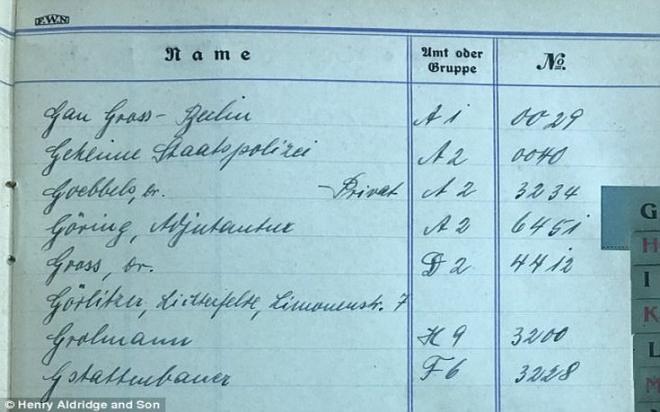 F.W.N
Name Amt oder Gruppe No.
Gau Gross-Berlin A 1 0029
Geheime Staatspolizei A 2 0040
Goebbels, Dr. - Privat A 2 3234
Göring, Adjutantur A 2 6451
Gross, Dr. D 2 4412
Görlitzer, Lichterfelde, Limonenstr. 7
Grolmann H 9 3200
Gstattenbauer F 6 3228
G
H
I
K
L
M
© Henry Aldridge and Son